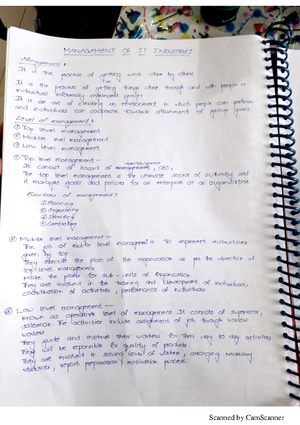 MANAGEMENT OF IT INDUSTRIES
Management :
It is the process of getting work done by others
It is the process of getting things done through and with people in
individual informally organised groups
It is an art of creating an environment in which people can perform
and individuals can cooperate towards attainment of group goals
Level of management :
① Top level management
② Middle level management
③ Low level management
① Top level management -
It consist of board of management, CEO,
The top level management is the ultimate source of authority and
it manages goals and policies for an enterprise or an organisation
Functions of management :
① Planning
② Organising
③ Directing
④ Controlling
② Middle level management -
The job of middle level management is to implement instructions
given by top
They execute the plan of the organisation as per the direction of
top level management
Make the plans for sub-units of organisation
They are involved in the training and development of individuals,
coordination of activities, performance of individuals
③ Low level management -
known as operative level of management. It consists of supervisors,
The activities include assignment of job through various
workers
They guide and instruct their workers for their day to day activities
They will be responsible for quality of products
They are involved in solving of workers, arranging necessary
resources, report preparation, motivation process
Scanned by CamScanner